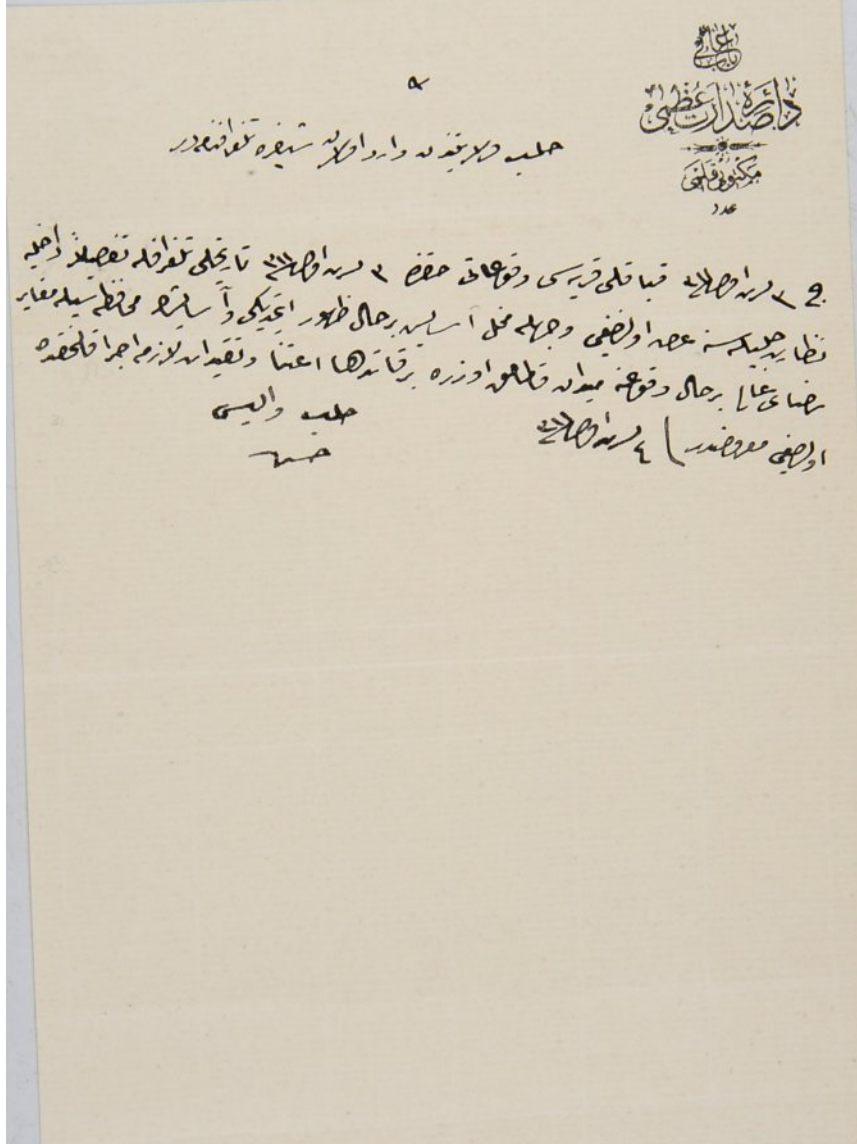 باب عالی
دائرهٔ صدارت عظمی
مکتوبی قلمی
عدد
حلب ولایتندن وارد اولان شیفره تلغرافنامه‌در
ج ٣ تشرین اول سنه ٣١١ قریه‌سی وقوعاتی حقنده ٣ تشرین اول سنه ٣١١ تاریخلی تلغرافله تفصیلاً داخلیه
نظارت جلیله‌سنه عرض اولندیغی وجهله مخل آسایش برحال ظهور ایتمدیکی و آسایشک محافظه‌سیله مغایر
رضای عالی برحال وقوعنه میدان قالمامق اوزره بر قات دها اعتنا و تقیدات لازمه اجرا قلنمقده
اولدیغی معروضدر ٤ تشرین اول سنه ٣١١
حلب والیسی
حسن